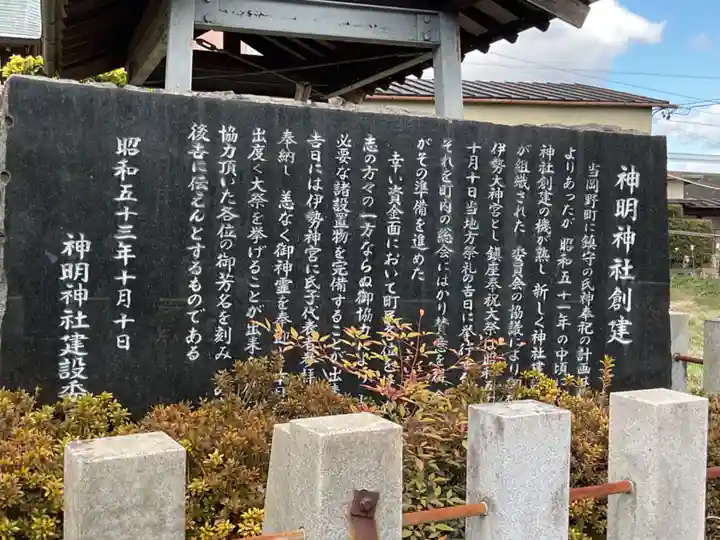 神明神社創建
当岡野町に鎮守の氏神奉祀の計画は
よりあったが 昭和五十一年の中頃
神社創建の機が熟し 新しく神社建
が組織された 委員会の協議により
伊勢大神宮とし 鎮座奉祝大祭は昭和五
十月十日当地方祭礼の吉日に挙行
それを町内の総会にはかり賛意を得
がその準備を進めた
幸い資金面において町民各位と
志の方々の一方ならぬ御協力により
必要な諸設置物を完備することが出
吉日には伊勢神宮に氏子代表が参拝
奉納し 恙なく御神霊を奉
出度く大祭を挙げることが出来
協力頂いた各位の御芳名を刻み
後世に伝えんとするものである
昭和五十三年十月十日
神明神社建設委